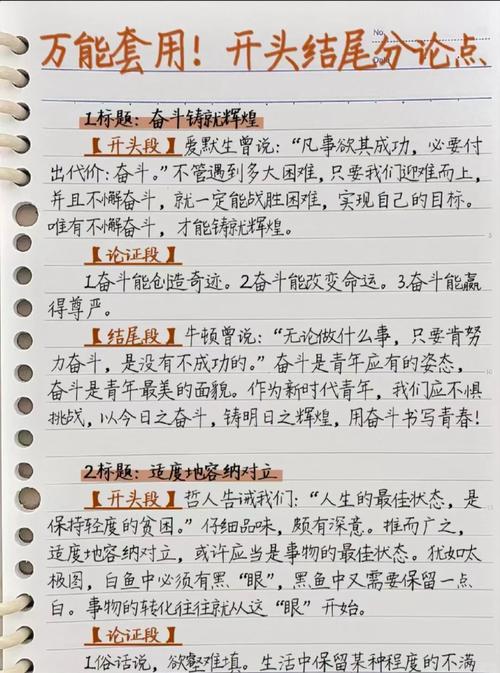 万能套用！开头结尾分论点
No.
1.标题：奋斗铸就辉煌
【开头段】爱默生曾说：“凡事欲其成功，必要付
出代价：奋斗。”不管遇到多大困难，只要我们迎难而上，
并且不懈奋斗，就一定能战胜困难，实现自己的目标。
唯有不懈奋斗，才能铸就辉煌。
【论证段】
1.奋斗能创造奇迹。2.奋斗能改变命运。3.奋斗能赢
得尊严。
【结尾段】牛顿曾说：“无论做什么事，只要肯努
力奋斗，是没有不成功的。”奋斗是青年应有的姿态，
奋斗是青年最美的面貌。作为新时代青年，我们应不惧
挑战，以今日之奋斗，铸明日之辉煌，用奋斗书写青春！
2.标题：适度地容纳对立
【开头段】哲人告诫我们：“人生的最佳状态，是
保持轻度的贫困。”仔细品味，颇有深意。推而广之，
适度地容纳对立，或许应当是事物的最佳状态。犹如太
极图，白鱼中必须有黑“眼”，黑鱼中又需要保留一点
白。事物的转化往往就从这“眼”开始。
【论证段】
1.俗话说，欲壑难填。生活中保留某种程度的不满